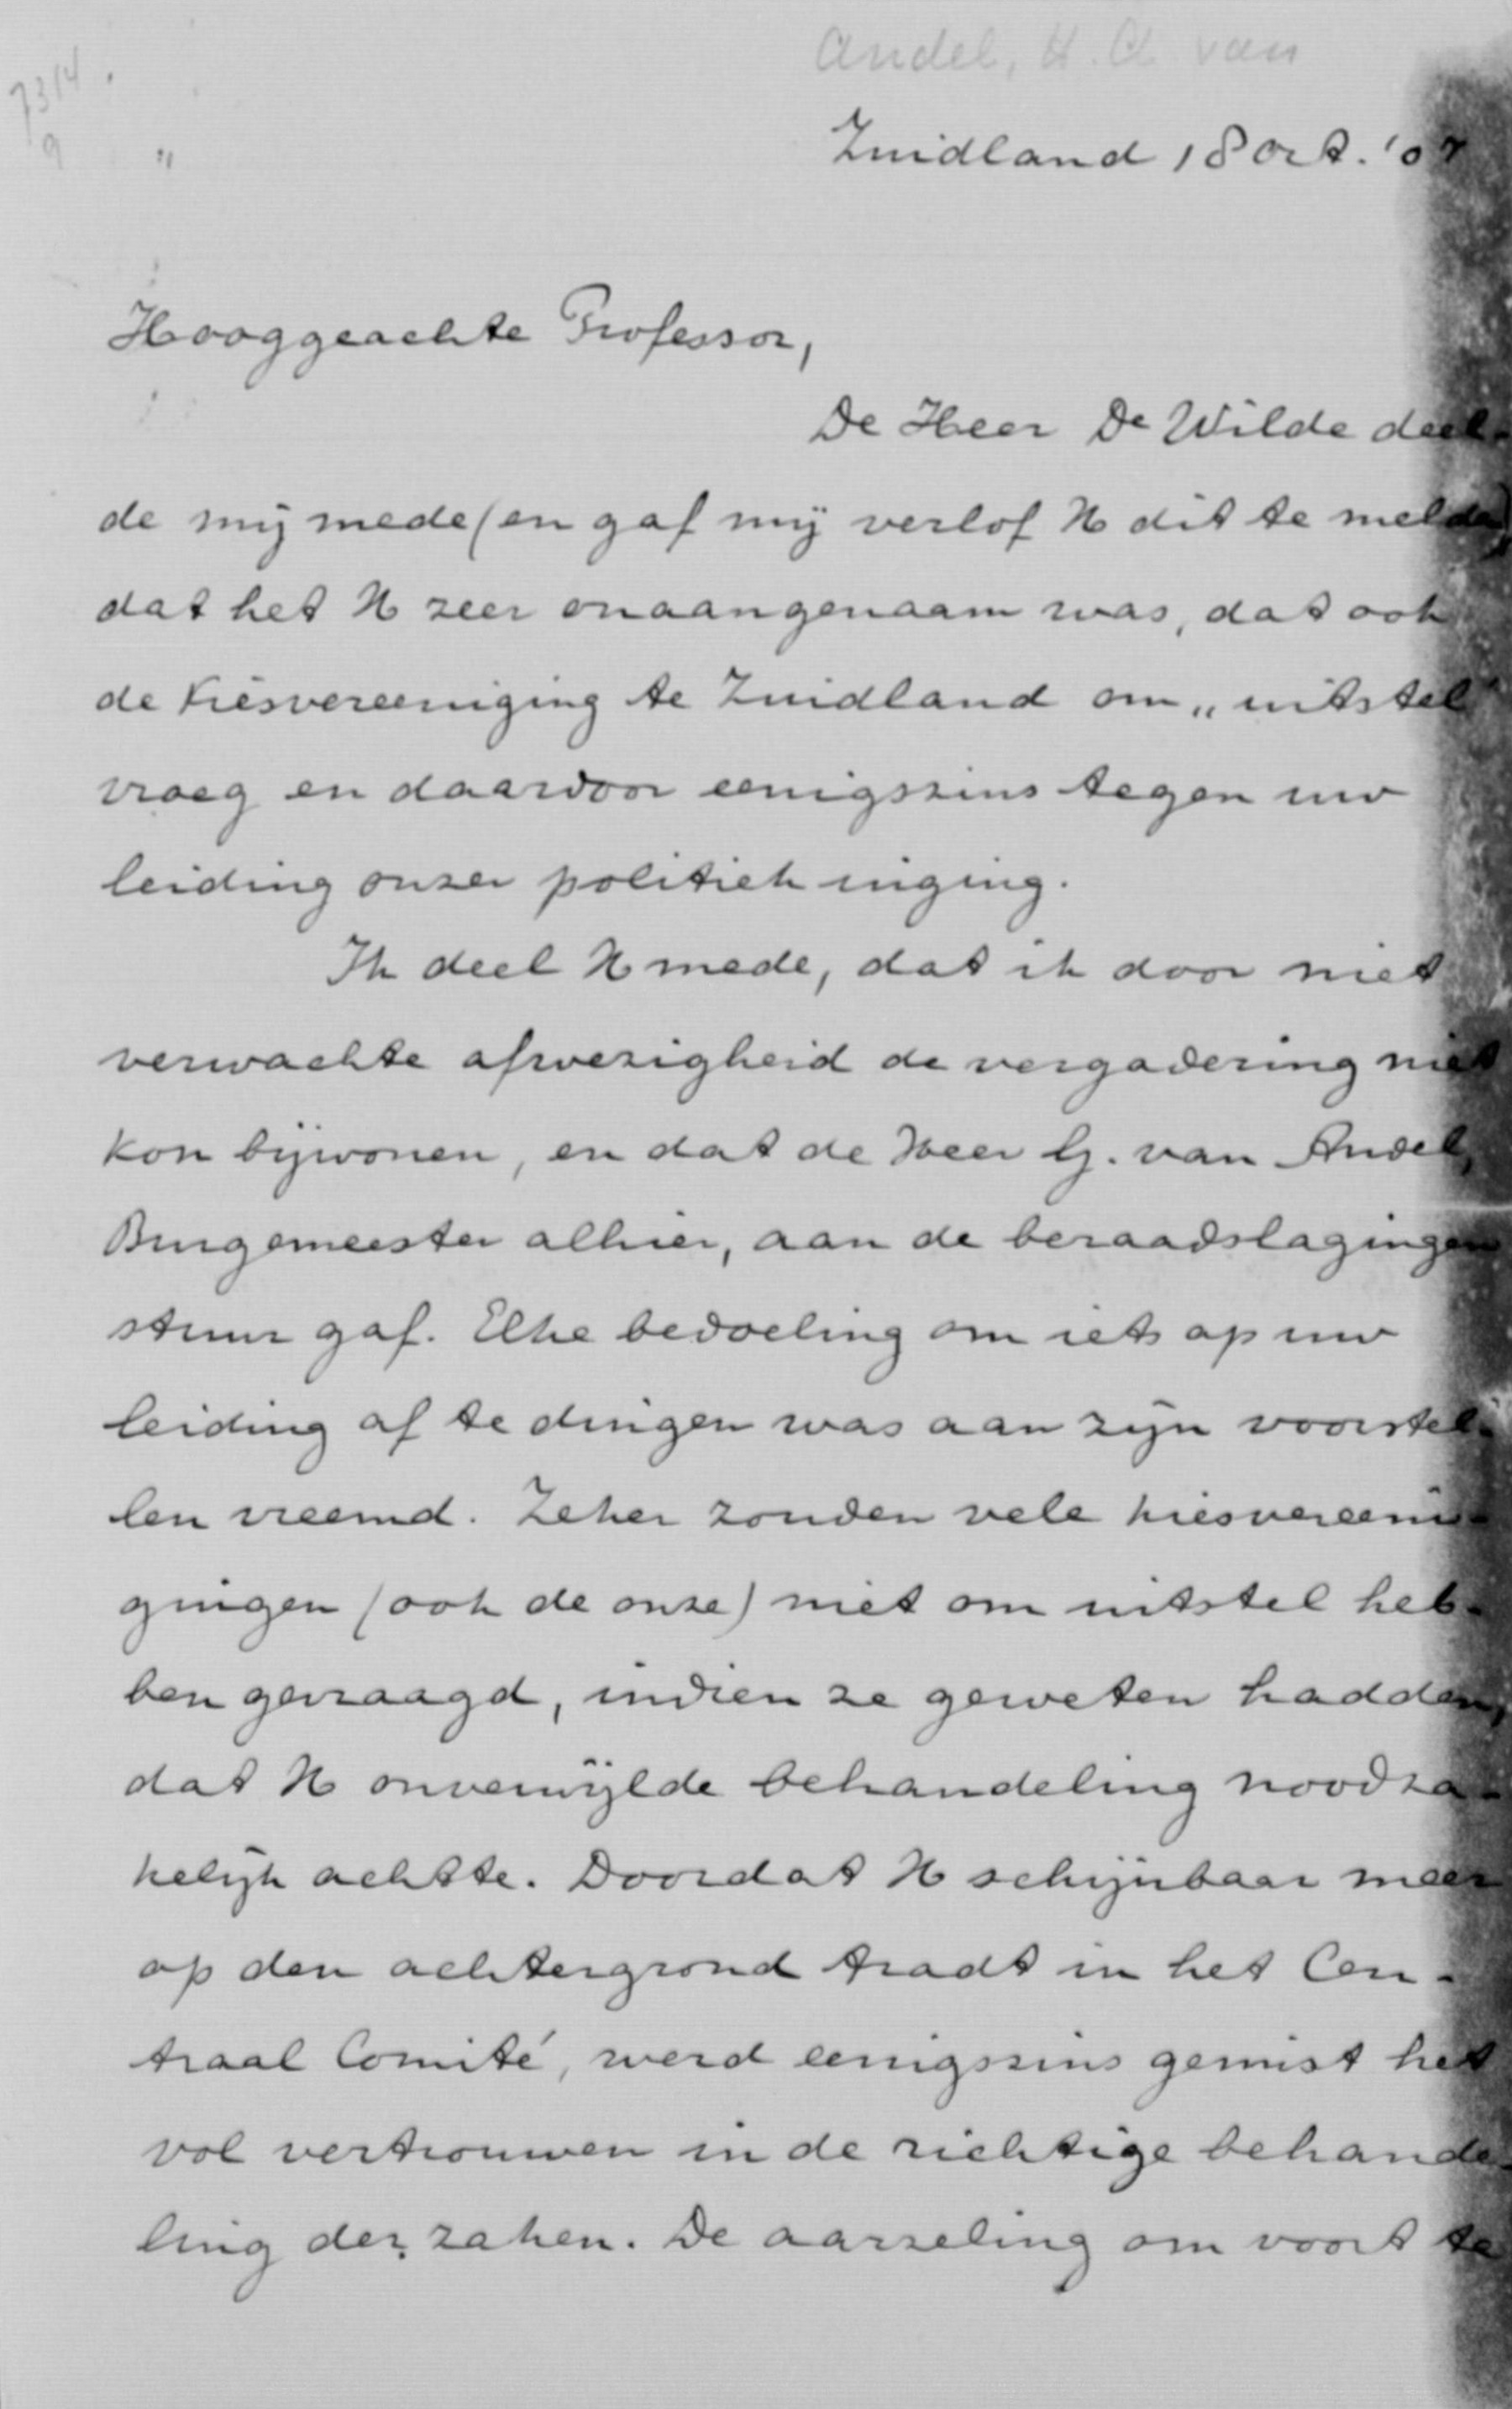 Andel, H. A. van
7314.
9 "
Zuidland 18 Oct. '07
Hooggeachte Professor,
De Heer De Wilde deel-
de mij mede (en gaf mij verlof U dit te melden)
dat het U zeer onaangenaam was, dat ook
de Kiesvereeniging te Zuidland om „uitstel"
vroeg en daardoor eenigszins tegen uw
leiding onzer politiek inging.
Ik deel U mede, dat ik door niet
verwachte afwezigheid de vergadering niet
kon bijwonen, en dat de Heer G. van Andel,
Burgemeester alhier, aan de beraadslagingen
stuur gaf. Elke bedoeling om iets op uw
leiding af te dingen was aan zijn voorstel-
len vreemd. Zeker zouden vele kiesvereeni-
gingen (ook de onze) niet om uitstel heb-
ben gevraagd, indien ze geweten hadden,
dat U onverwijlde behandeling noodza-
kelijk achtte. Doordat U schijnbaar meer
op den achtergrond tradt in het Cen-
traal Comité, werd eenigszins gemist het
vol vertrouwen in de richtige behande-
ling der zaken. De aarzeling om voort te